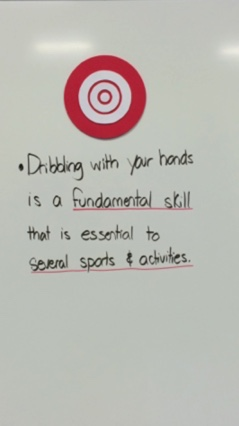 • Dribbling with your hands
is a fundamental skill
that is essential to
several sports & activities.